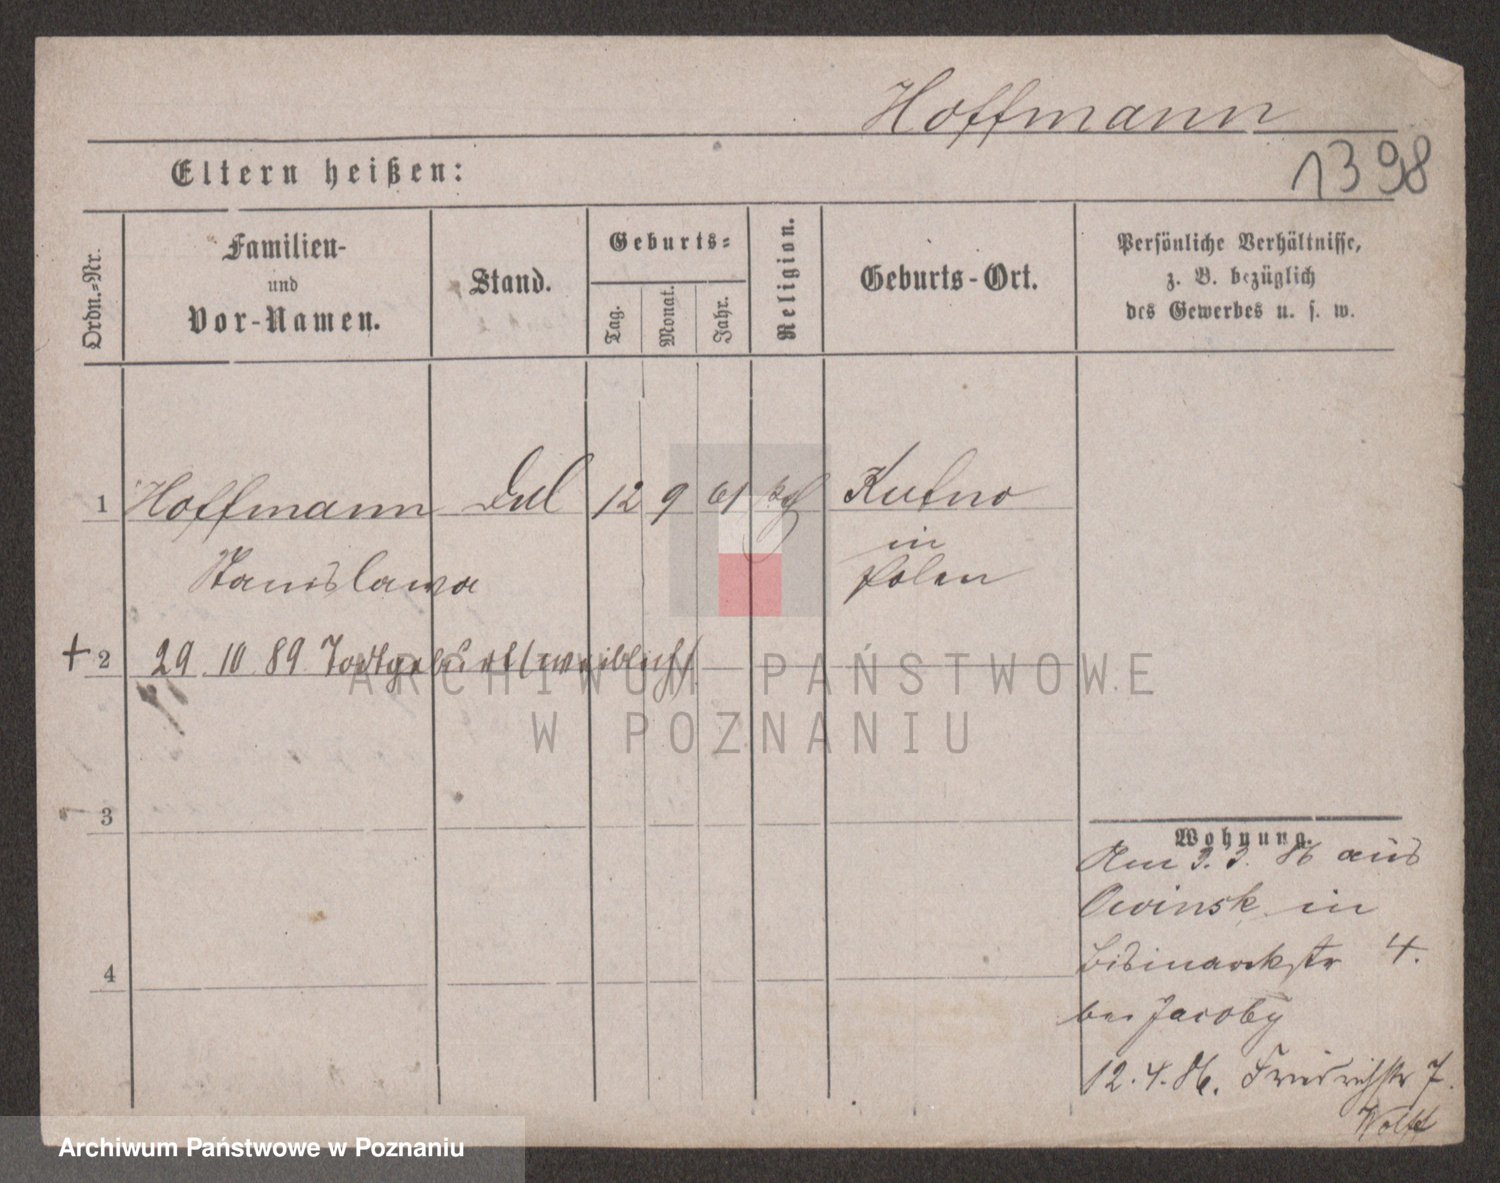 Hoffmann
1398
Eltern heißen:
Ordn.-Nr.
Familien-
und
Vor-Namen.
Stand.
Geburts-
Tag.
Monat.
Jahr.
Religion.
Geburts-Ort.
Persönliche Verhältnisse,
z. B. bezüglich
des Gewerbes u. s. w.
1 Hoffmann 12 9 61 Kutno
Stanislawa
in
Polen
+ 2 29. 10 89 Todtgeburt (weiblich)
ARCHIWUM PAŃSTWOWE
W POZNANIU
3
4
Wohnung.
Am 3. 3. 86 aus
Owinsk in
Bismarckstr 4.
bei Jacoby
12. 4. 86. Friedrichstr 7.
Wolff
Archiwum Państwowe w Poznaniu